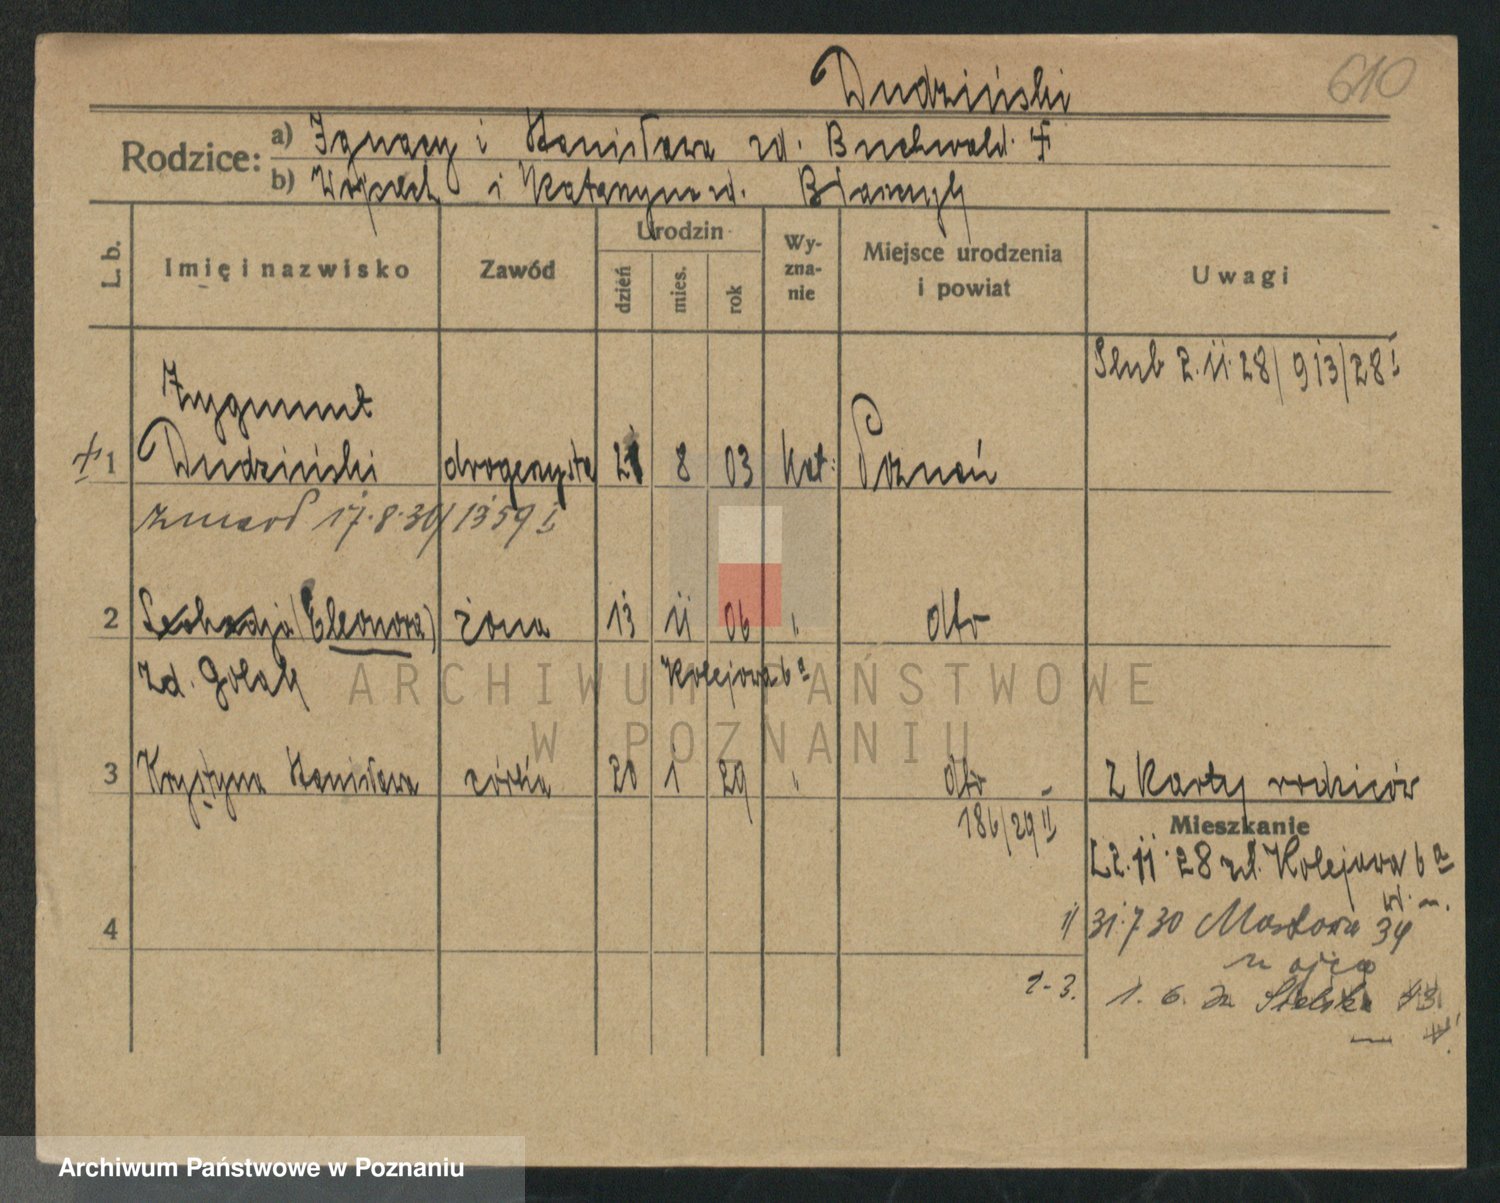 610
Dudziński
Rodzice:
a) Ignacy i Stanisława zd. Buchwald
b) Wojciech i Katarzyna zd.
L. b.
Imię i nazwisko
Zawód
Urodzin
dzień
mies.
rok
Wy-
zna-
nie
Miejsce urodzenia
i powiat
Uwagi
Ślub 2.11.28/913/28 I
Zygmunt
1 Dudziński drogerzysta 21 8 03 kat. Poznań
zmarł 17.8.30/1359 I
2 (Eleonora) żona 13 11 06 " dto
zd. Golak Kolejowa 6a
3 Krystyna Stanisława córka 20 1 29 " dto z karty rodziców
186/29 II
Mieszkanie
22.11.28 Kolejowa 6a
4
1/ 31.7.30 Mostowa 34
u ojca
2-3. 1.6.
ARCHIWUM PAŃSTWOWE
W POZNANIU
Archiwum Państwowe w Poznaniu